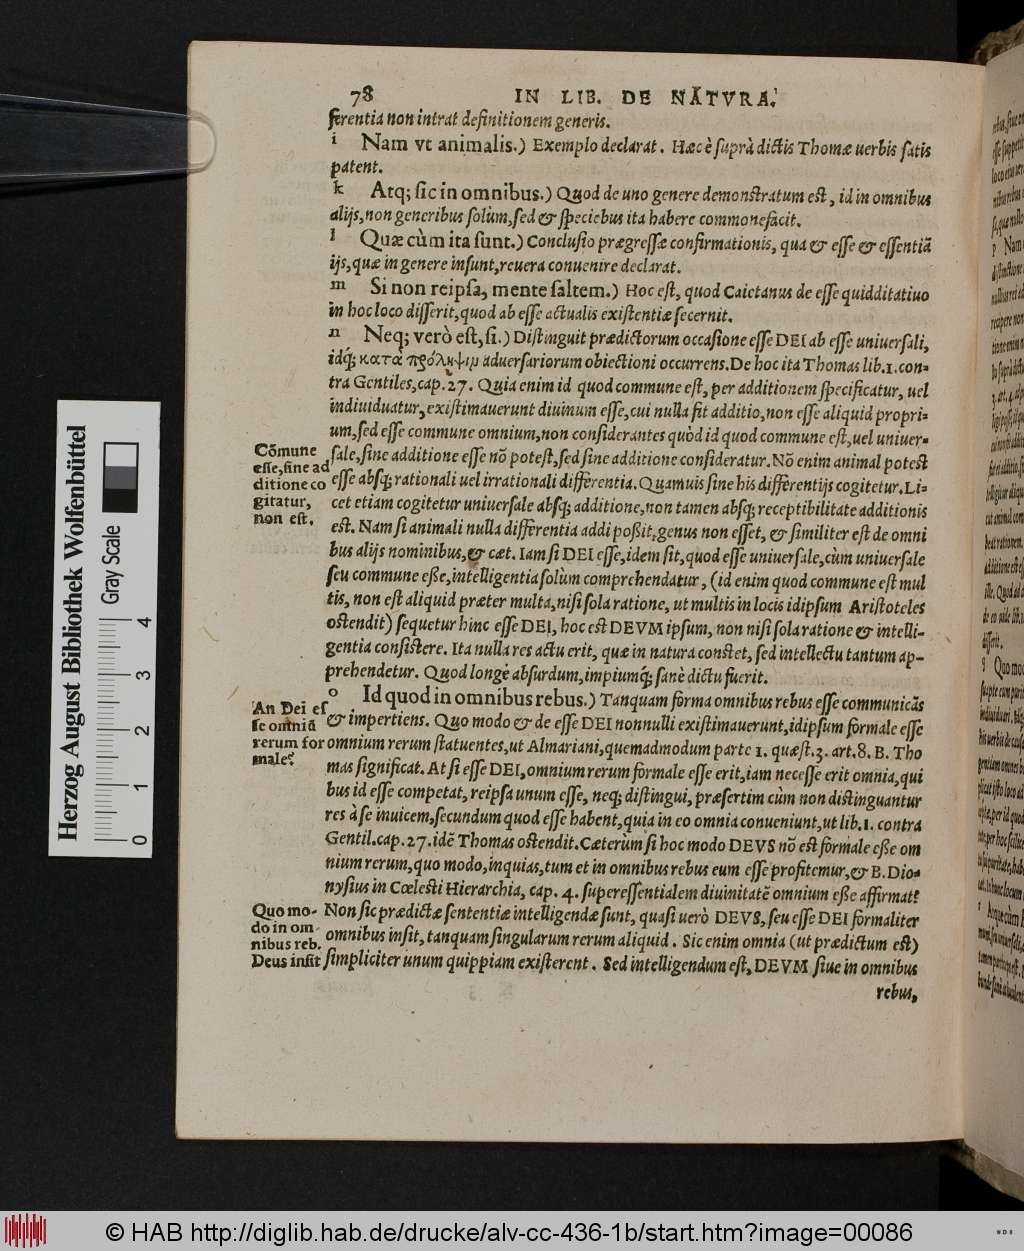 78 IN LIB. DE NATVRA.
ferentia non intrat definitionem generis.
i Nam vt animalis.) Exemplo declarat. Hæc è suprà dictis Thomæ uerbis satis
patent.
k Atq; sic in omnibus.) Quod de uno genere demonstratum est, id in omnibus
alijs, non generibus solùm, sed & speciebus ita habere commonefacit.
l Quæ cùm ita sunt.) Conclusio prægressæ confirmationis, qua & esse & essentiã
ijs, quæ in genere insunt, reuera conuenire declarat.
m Si non reipsa, mente saltem.) Hoc est, quod Caietanus de esse quidditatiuo
in hoc loco disserit, quod ab esse actualis existentiæ secernit.
n Neq; verò est, si.) Distinguit prædictorum occasione esse DEI ab esse uniuersali,
idq́; κατὰ πρόληψιν aduersariorum obiectioni occurrens. De hoc ita Thomas lib. 1. con-
tra Gentiles, cap. 27. Quia enim id quod commune est, per additionem specificatur, uel
indiuiduatur, existimauerunt diuinum esse, cui nulla fit additio, non esse aliquid propri-
um, sed esse commune omnium, non considerantes quòd id quod commune est, uel uniuer-
Cõmune
esse, sine ad
ditione co
gitatur,
non est.
sale, sine additione esse nõ potest, sed sine additione consideratur. Nõ enim animal potest
esse absq; rationali uel irrationali differentia. Quamuis sine his differentijs cogitetur. Li-
cet etiam cogitetur uniuersale absq; additione, non tamen absq; receptibilitate additionis
est. Nam si animali nulla differentia addi poßit, genus non esset, & similiter est de omni
bus alijs nominibus, & cæt. Iam si DEI esse, idem sit, quod esse uniuersale, cùm uniuersale
seu commune eße, intelligentia solùm comprehendatur, (id enim quod commune est mul
tis, non est aliquid præter multa, nisi sola ratione, ut multis in locis idipsum Aristoteles
ostendit) sequetur hinc esse DEI, hoc est DEVM ipsum, non nisi sola ratione & intelli-
gentia consistere. Ita nulla res actu erit, quæ in natura constet, sed intellectu tantum ap-
prehendetur. Quod longè absurdum, impiumq́; sanè dictu fuerit.
o Id quod in omnibus rebus.) Tanquam forma omnibus rebus esse communicãs
An Dei es
se omniã
rerum for
male?
& impertiens. Quo modo & de esse DEI nonnulli existimauerunt, idipsum formale esse
omnium rerum statuentes, ut Almariani, quemadmodum parte 1. quæst. 3. art. 8. B. Tho
mas significat. At si esse DEI, omnium rerum formale esse erit, iam necesse erit omnia, qui
bus id esse competat, reipsa unum esse, neq; distingui, præsertim cùm non distinguantur
res à se inuicem, secundum quod esse habent, quia in eo omnia conueniunt, ut lib. 1. contra
Gentil. cap. 27. idē Thomas ostendit. Cæterùm si hoc modo DEVS nõ est formale eße om
nium rerum, quo modo, inquias, tum et in omnibus rebus eum esse profitemur, & B. Dio-
nysius in Cœlesti Hierarchia, cap. 4. superessentialem diuinitatē omnium eße affirmat?
Quo mo-
do in om-
nibus reb.
Deus insit
Non sic prædictæ sententiæ intelligendæ sunt, quasi uerò DEVS, seu esse DEI formaliter
omnibus insit, tanquam singularum rerum aliquid. Sic enim omnia (ut prædictum est)
simpliciter unum quippiam existerent. Sed intelligendum est, DEVM siue in omnibus
rebus,
Herzog August Bibliothek Wolfenbüttel
Gray Scale
0 1 2 3 4
© HAB http://diglib.hab.de/drucke/alv-cc-436-1b/start.htm?image=00086